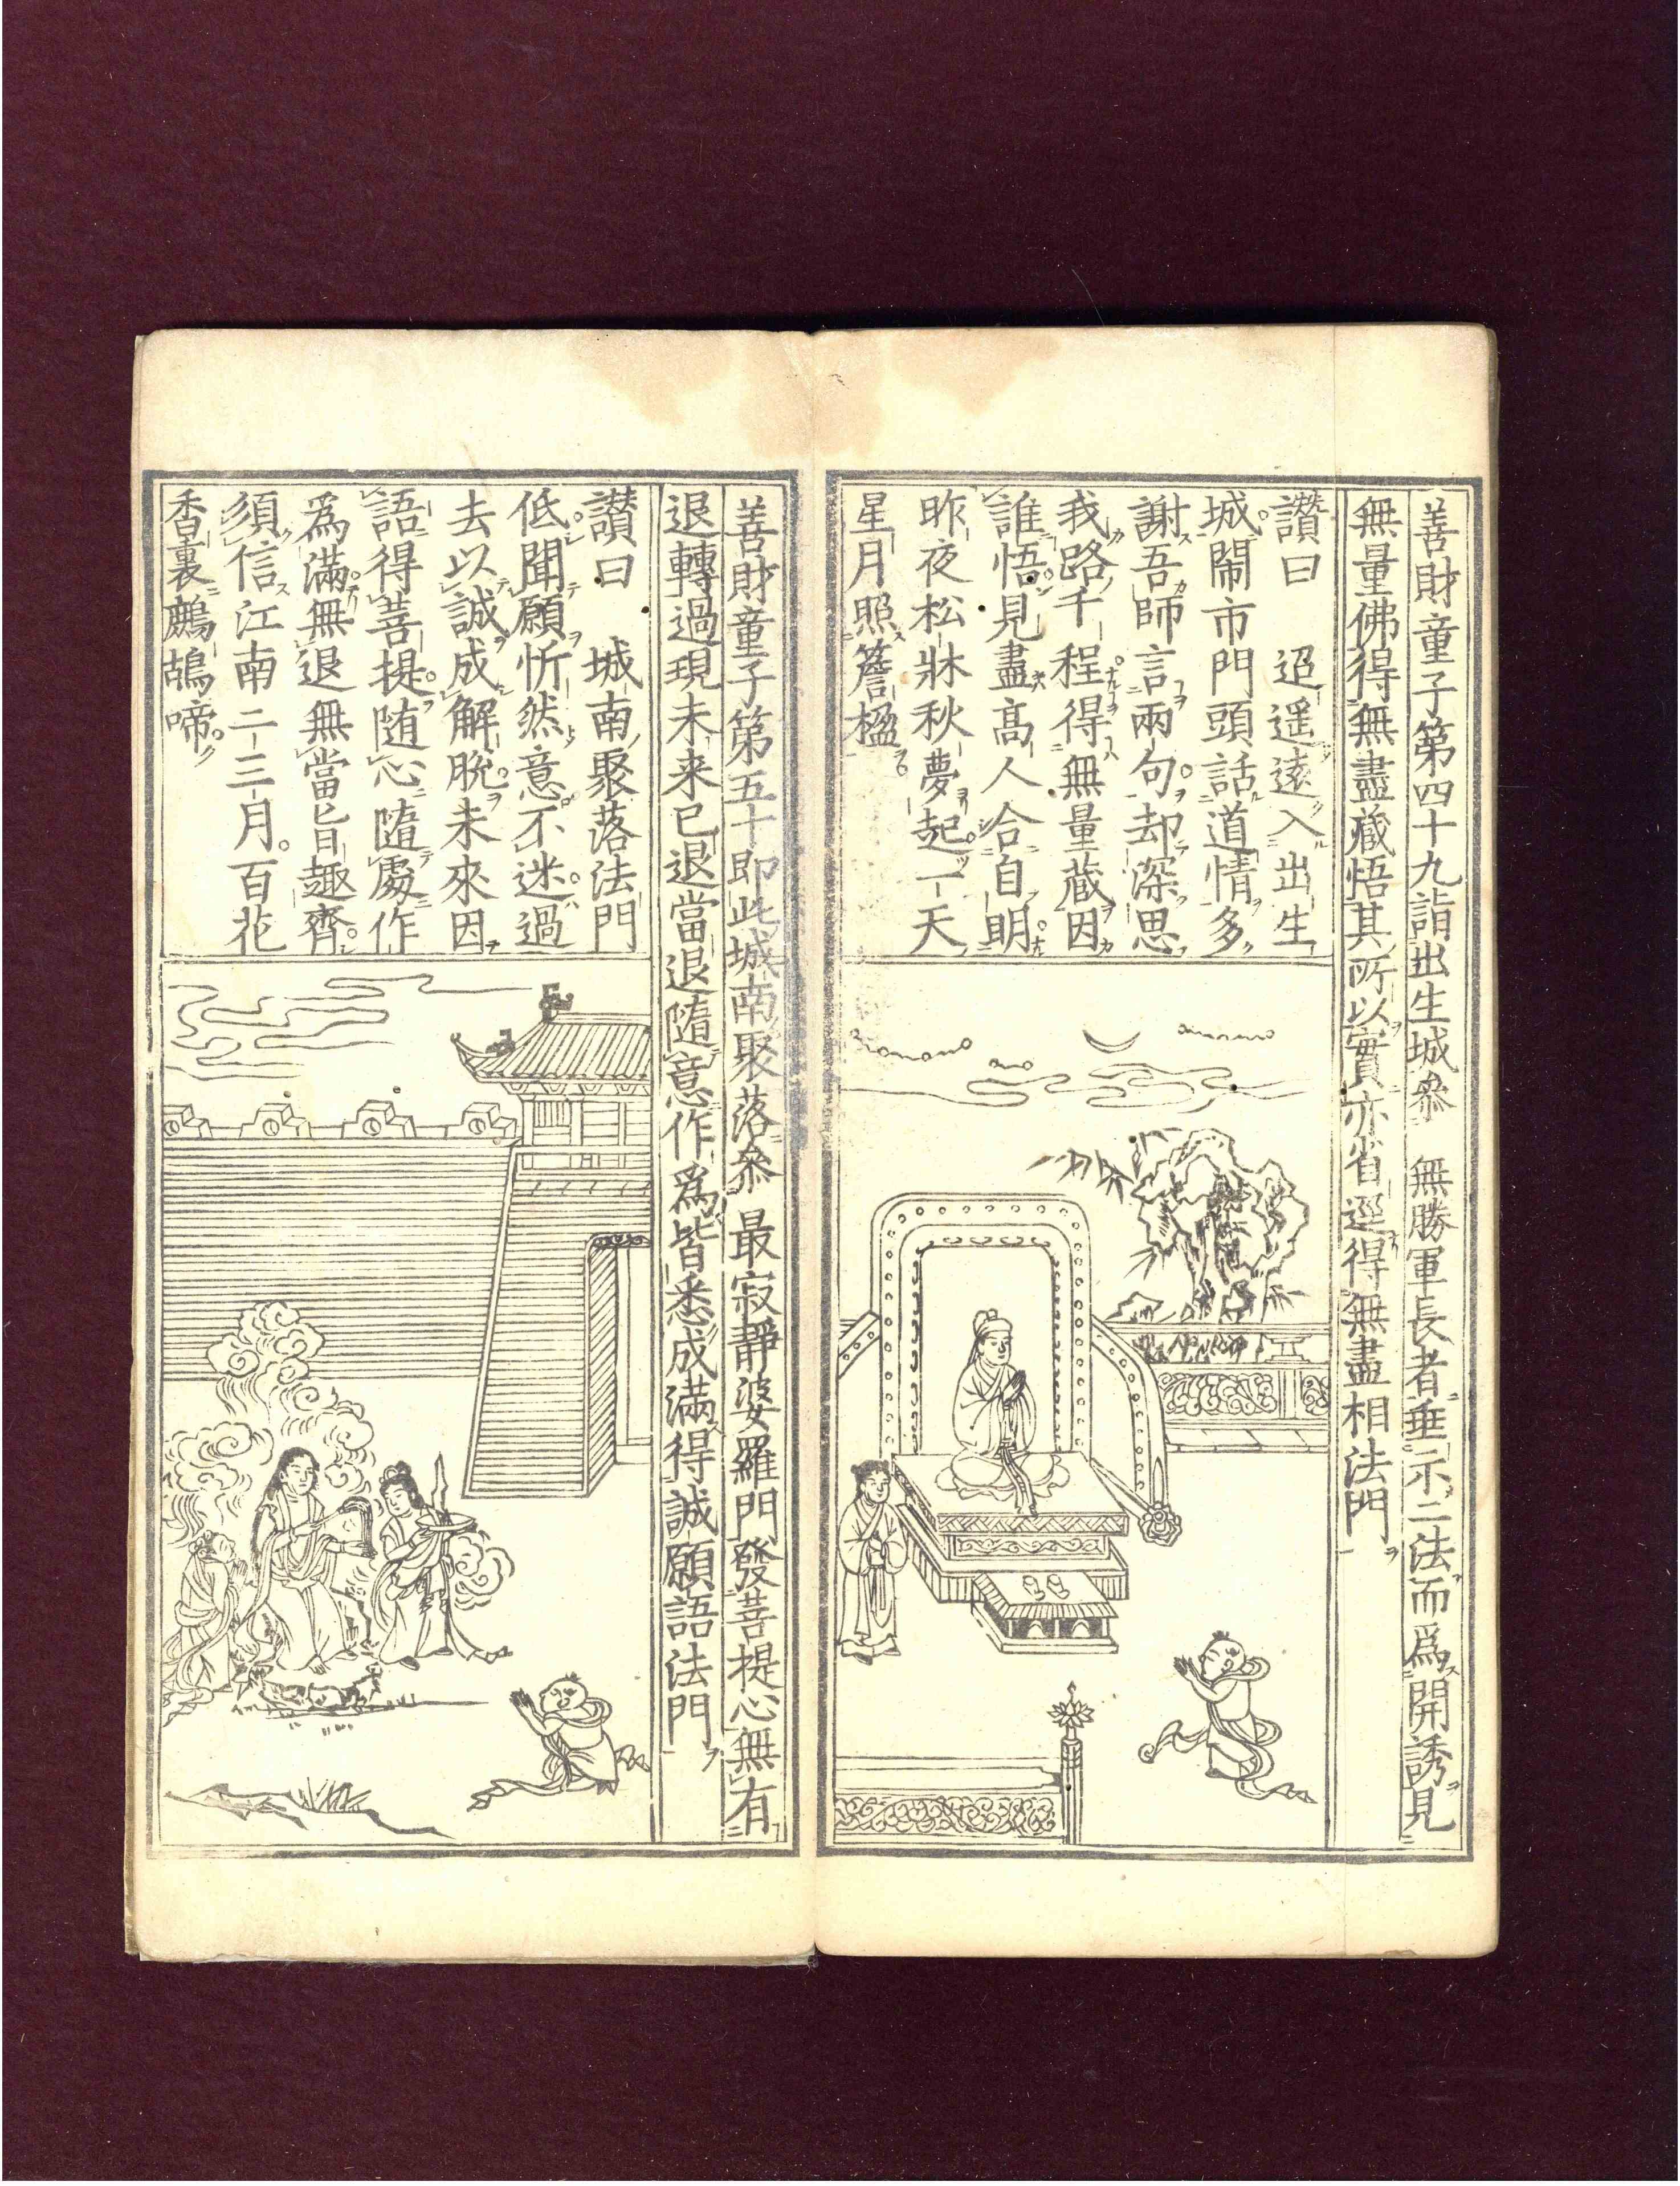 善財童子第四十九詣出生城叅　無勝軍長者垂示二法而爲開誘見
無量佛得無盡藏悟其所以實亦省逕得無盡相法門
讃曰　迢遥逺入出生
城鬧市門頭話道情多
謝吾師言兩句却深思
我路千程得無量蔵因
誰悟見盡髙人合自明
昨夜松牀秋夢起一天
星月照簷楹
善財童子第五十即此城南聚落叅　最寂靜婆羅門發菩提心無有
退轉過現未来已退當退隨意作爲皆悉成滿得誠願語法門
讃曰　城南聚落法門
低聞願忻然意不迷過
去以誠成解脫未來因
語得菩提随心隨處作
爲滿無退無當旨趣齊
須信江南二三月百花
香裏鷓鴣啼